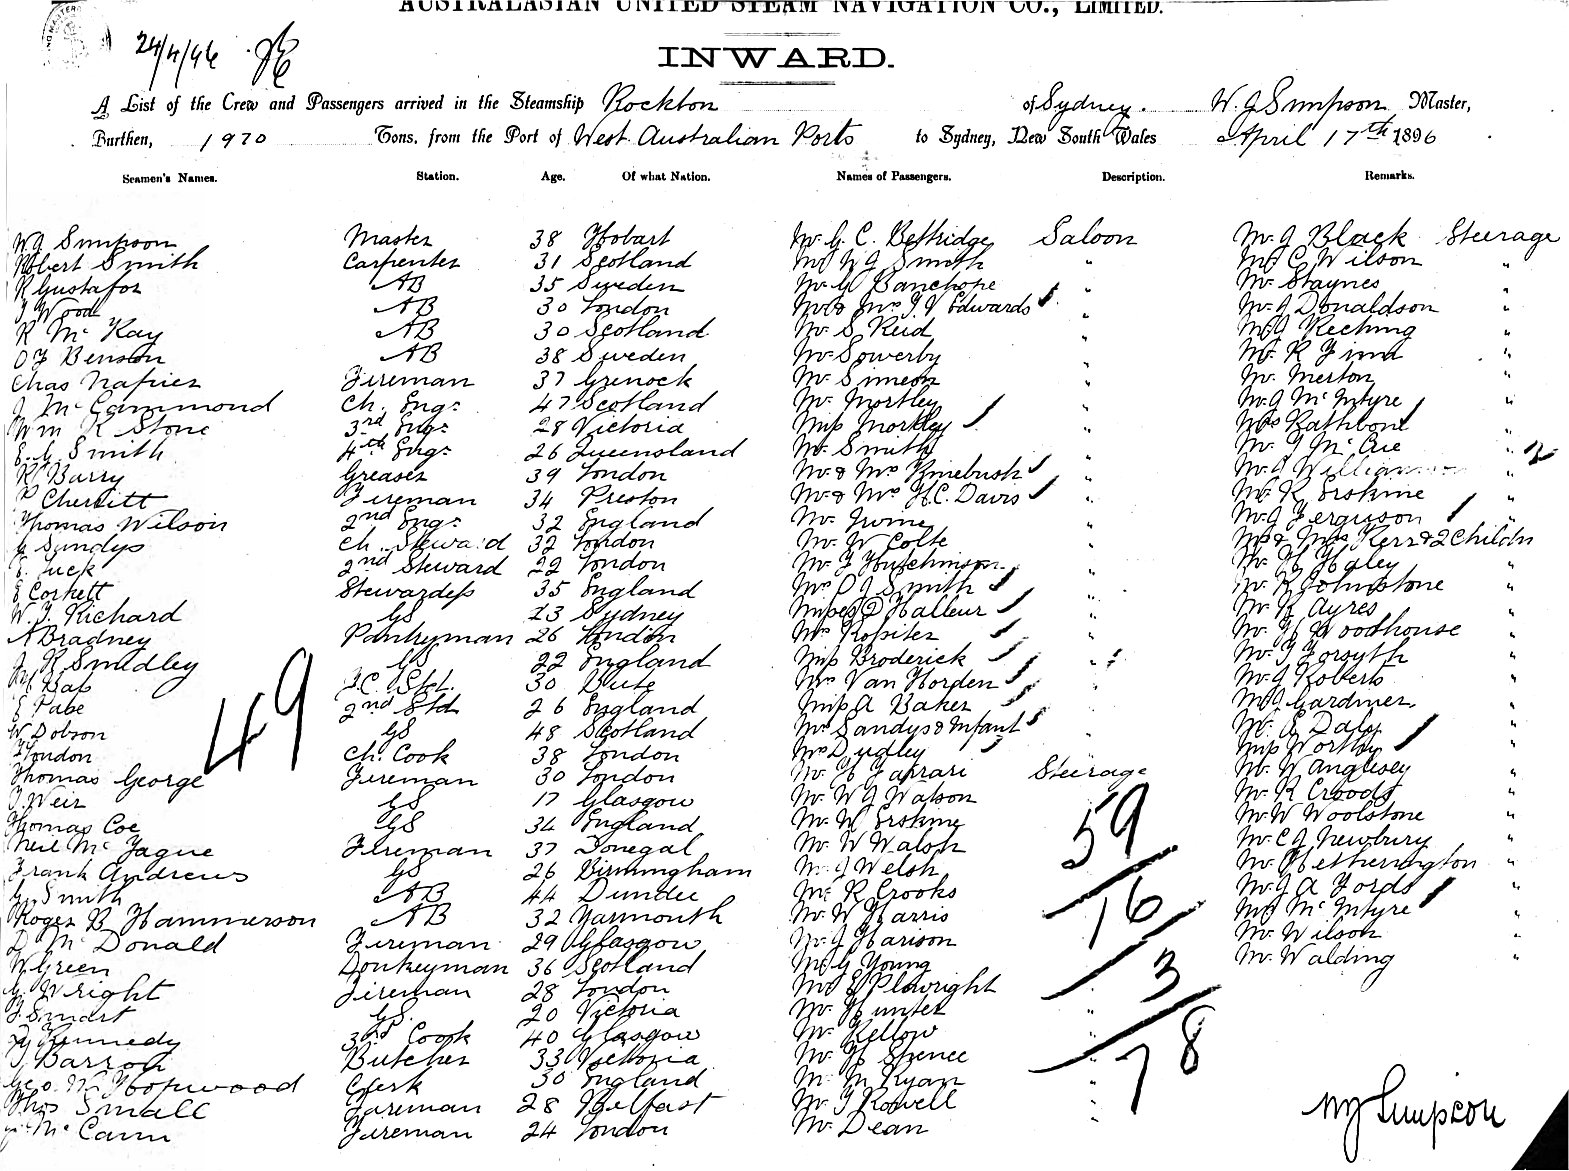 AUSTRALASIAN UNITED STEAM NAVIGATION CO., LIMITED.
24/4/96
INWARD.
A List of the Crew and Passengers arrived in the Steamship Rockton of Sydney. W. J Simpson Master,
Burthen, 1970 Tons, from the Port of West Australian Ports to Sydney, New South Wales April 17th 1896
Seamen's Names. Station. Age. Of what Nation. Names of Passengers. Description. Remarks.
W J Simpson Master 38 Hobart Mr. G. C. Bettridge Saloon Mr. J Black Steerage
Robert Smith Carpenter 31 Scotland Mr W J Smith " Mr C Wilson "
R Gustafor AB 35 Sweden Mr G Banchope " Mr Staynes "
J Wood AB 30 London Mr & Mrs J. V Edwards " Mr J Donaldson "
R McKay AB 30 Scotland Mr S Reid " Mr J Keching "
O J Benson AB 38 Sweden Mr Sowerby " Mr R Finn "
Chas Napier Fireman 37 Grenock Mr Simeon " Mr Merton "
J McCammond Ch. Engr 47 Scotland Mr Mortley " Mr J McIntyre "
Wm R Stone 3rd Engr 28 Victoria Miss Mortley " Mrs Rathbone "
E. G Smith 4th Engr 26 Queensland Mr Smith " Mr J McCue "
R Barry Greaser 39 London Mr & Mrs Kinebush " Mr J Williamson "
P Cherritt Fireman 34 Preston Mr & Mrs H. C. Davis " Mr R Erskine "
Thomas Wilson 2nd Engr 32 England Mr Irvine " Mr J Ferguson "
G Sandys Ch. Steward 32 London Mr W Colte " Mr & Mrs Kerr & 2 Childn
E. Tuck 2nd Steward 22 London Mr F Hutchinson " Mr H Haley "
E Corkett Stewardess 35 England Mrs P J Smith " Mr R Johnstone "
W. J. Richard GS 23 Sydney Misses Halleur " Mr R Ayres "
A Bradney Pantryman 26 London Mrs Rossiter " Mr H Woodhouse "
J R Smedley GS 22 England Miss Broderick " Mr J Forsyth "
Bass F. C. Std. 30 Bute Mrs Van Horden " Mr J Roberts "
E Pabe 2nd Std 26 England Miss A Baker " Mr J Gardiner "
W Dobson GS 48 Scotland Mrs Sandys & Infant " Mr A Daly "
London Ch. Cook 38 London Mrs Dudley " Miss Wortley "
Thomas George Fireman 30 London Mr H Farrari Steerage Mr W Anglesey "
J Weir GS 17 Glasgow Mr W J Watson " Mr R Croods "
Thomas Coe GS 34 England Mr W Erskine Mr W Woolstone "
Neil McFague Fireman 37 Donegal Mr W Walsh Mr C J Newbury "
Frank Andrews GS 26 Birmingham Mr J Welsh Mr Hetherington "
Smith AB 44 Dundee Mr R Crooks Mr J A Fords "
Roger B Hammerson AB 32 Yarmouth Mr W Harris Mrs McIntyre "
D McDonald Fireman 29 Glasgow Mr J Harison Mr Wilson "
W Green Donkeyman 36 Scotland Mr G Young Mr Walding "
G. Wright Fireman 28 London Mr E Plowright
J. Smart GS. 20 Victoria Mr Hunter "
Kennedy 3rd Cook 40 Glasgow Mr Kellow
J Barron Butcher 33 Victoria Mr H Spence
Geo. W Hopwood Clerk 30 England Mr M Ryan "
Thos Small Fireman 28 Belfast Mr J Rowell "
McCann Fireman 24 London Mr Dean "
49
59
16
3
78
2
W J Simpson